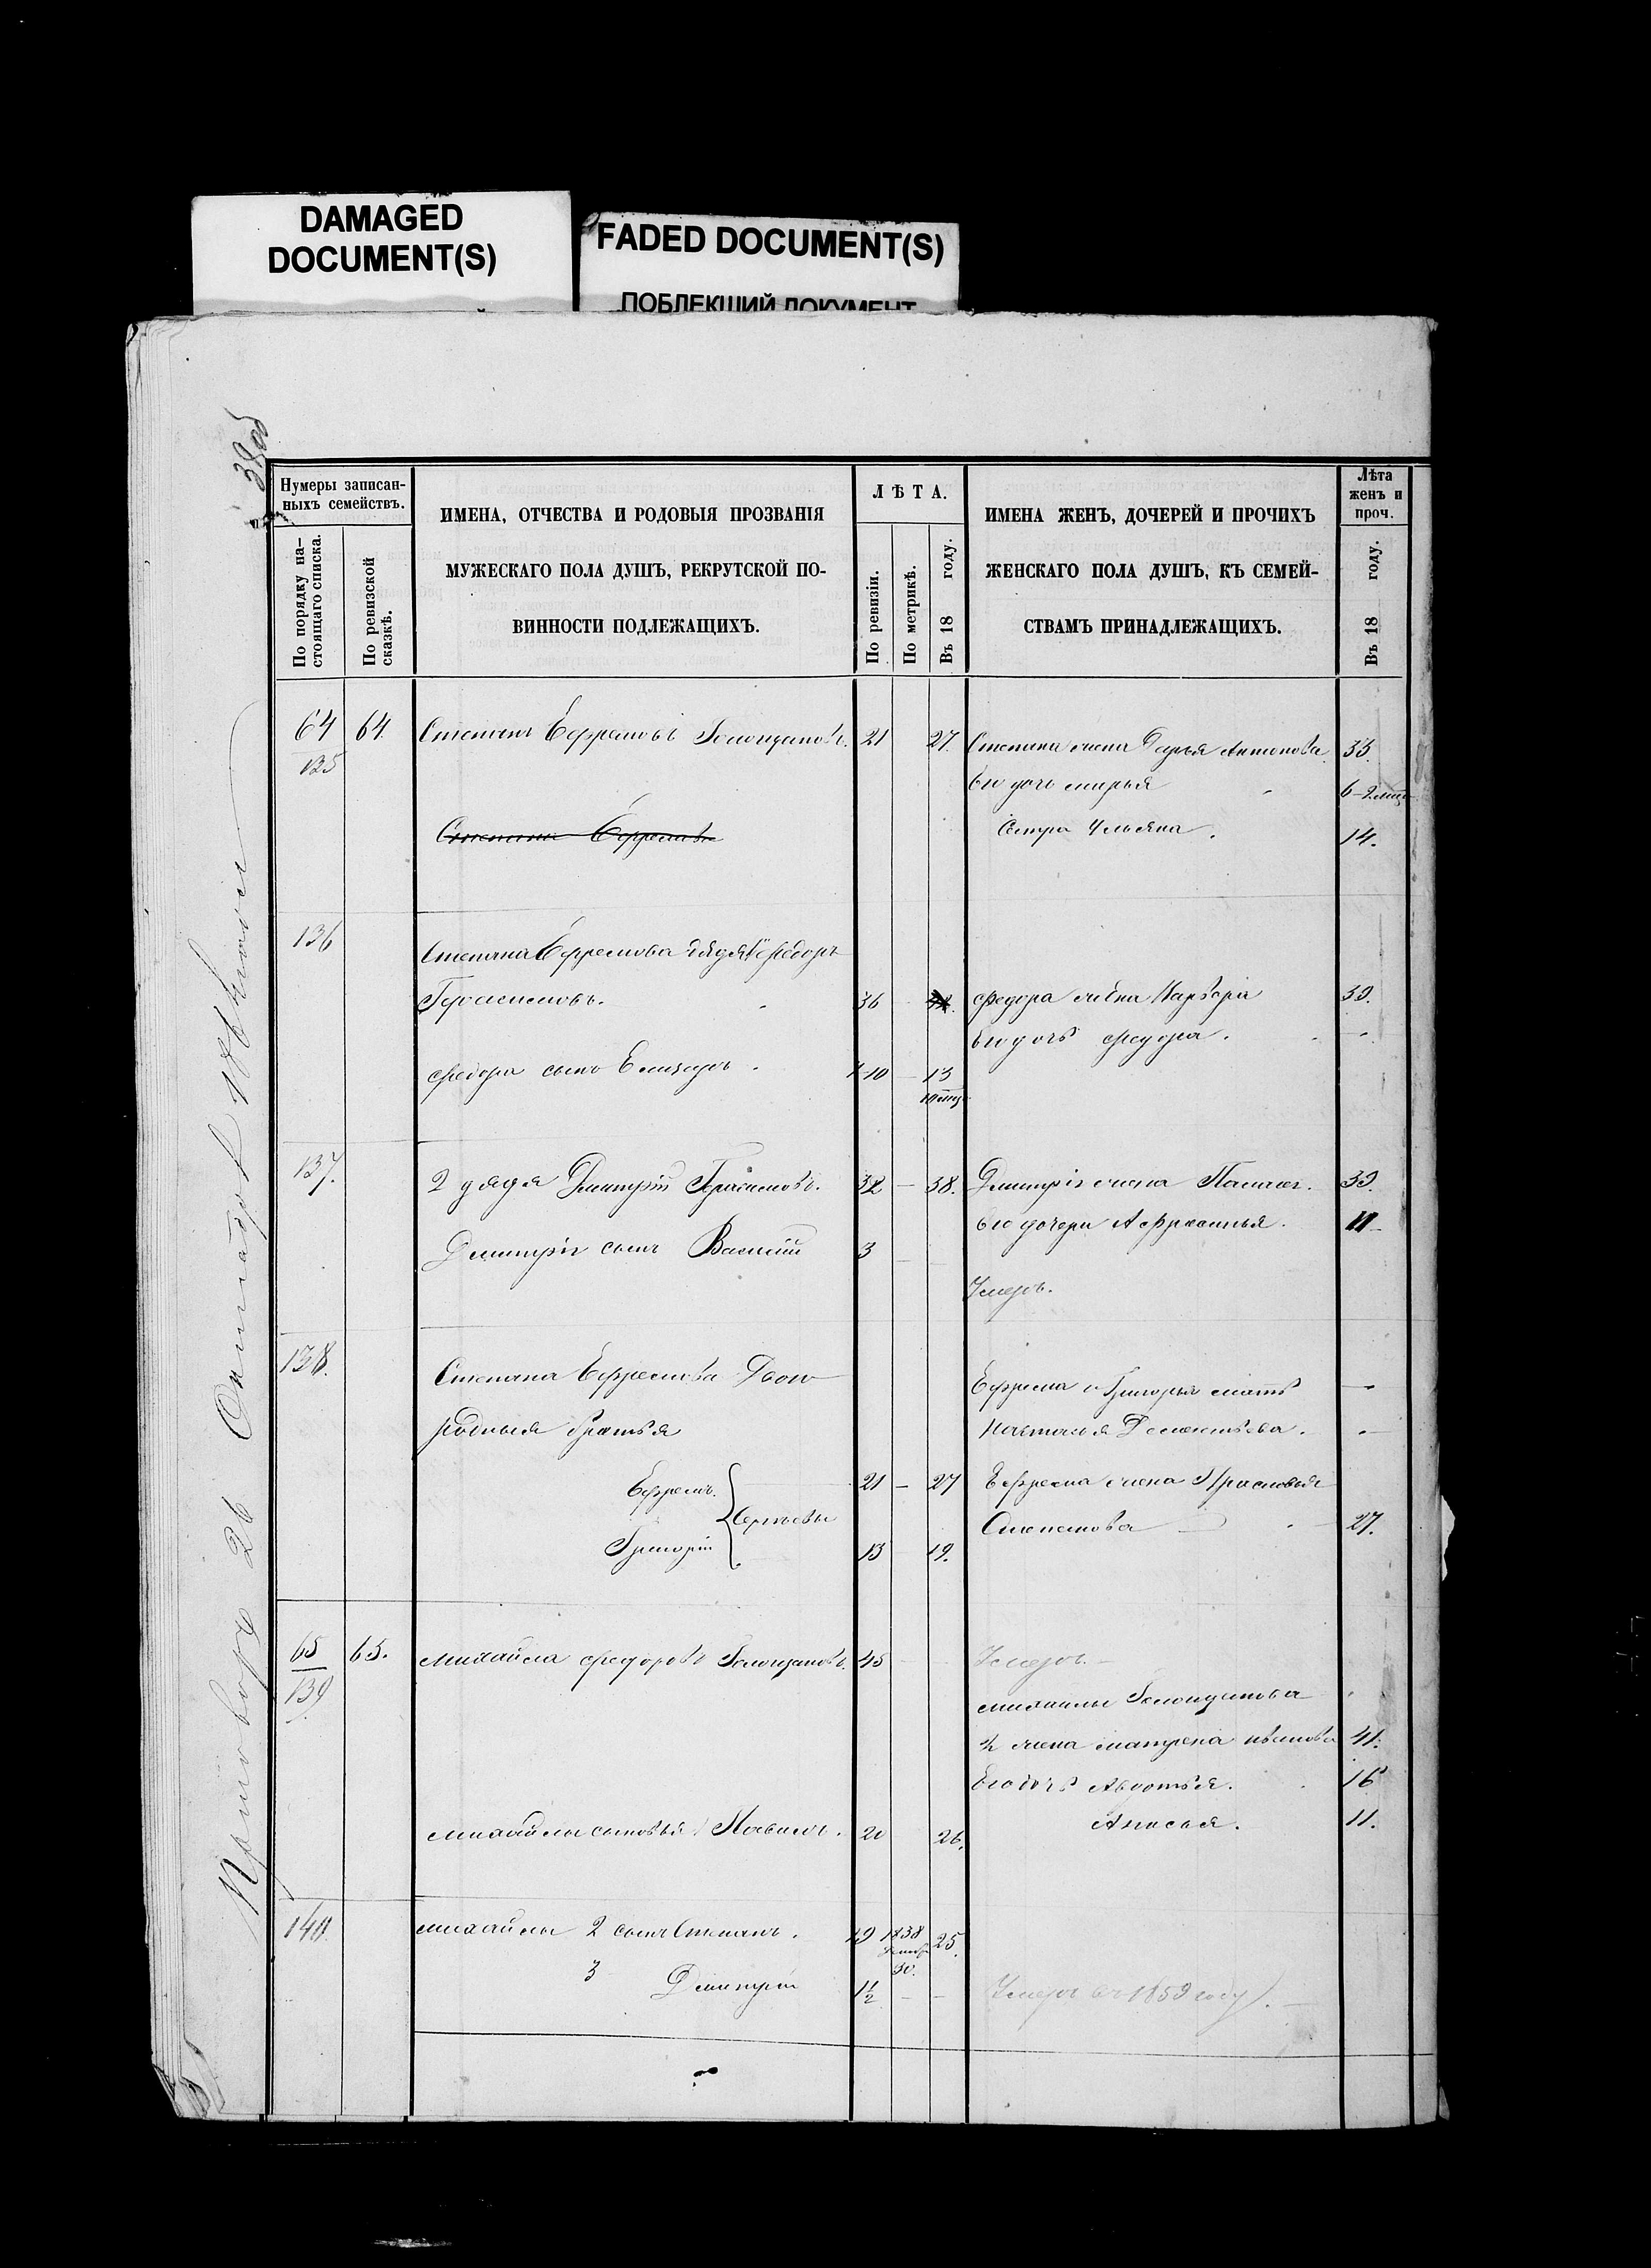 DAMAGED
DOCUMENT(S)
FADED DOCUMENT(S)
ПОБЛЕКШИЙ ДОКУМЕНТ
38об
Нумеры записан-
ныхъ семействъ.
По порядку на-
стоящаго списка.
По ревизской
сказкѣ.
ИМЕНА, ОТЧЕСТВА И РОДОВЫЯ ПРОЗВАНІЯ
МУЖЕСКАГО ПОЛА ДУШЪ, РЕКРУТСКОЙ ПО-
ВИННОСТИ ПОДЛЕЖАЩИХЪ.
ЛѢТА.
По ревизіи.
По метрикѣ.
Въ 18 году.
ИМЕНА ЖЕНЪ, ДОЧЕРЕЙ И ПРОЧИХЪ
ЖЕНСКАГО ПОЛА ДУШЪ, КЪ СЕМЕЙ-
СТВАМЪ ПРИНАДЛЕЖАЩИХЪ.
Лѣта
женъ и
проч.
Въ 18 году.
64 64. Степанъ Ефремовъ 21 27. Степана жена Дарья Антонова 33.
135
Его дочь Марья 6-2 мѣц
Степана Ефремова
Сестра Ульяна. 14.
136
Степана Ефремова дядя Федоръ
Герасимовъ. 36 Федора жена Варвара 39.
Его дочь Федора. —
Федора сынъ Елизаръ. 10 — 13
10 мѣц
137. 2 дядя Дмитрій Герасимовъ. 32 — 38. Дмитрія жена 39.
Его дочери Афросинья. 11
Дмитрія сынъ Василій 3
Умеръ.
138. Степана Ефремова Двою-
родныя братья
Ефрема и Григорья мать —
Настасья Дементьева. —
Ефремъ 21 — 27 Ефрема жена Прасковья
Сергѣевы
Степанова 27.
Григорій 13 19.
65 65. Михайла Федоровъ 45 Умеръ.
139
Михайлы
жена Матрена Иванова 41.
Его дочь Авдотья. 16
Анисья. 11.
Михайлы сыновья 20 26.
140. Михайлы 2 сынъ Степанъ. 19 1838 25.
30.
3 Дмитрій 1½ — — Умеръ въ 1859 году.
Приговоръ 26 Октября